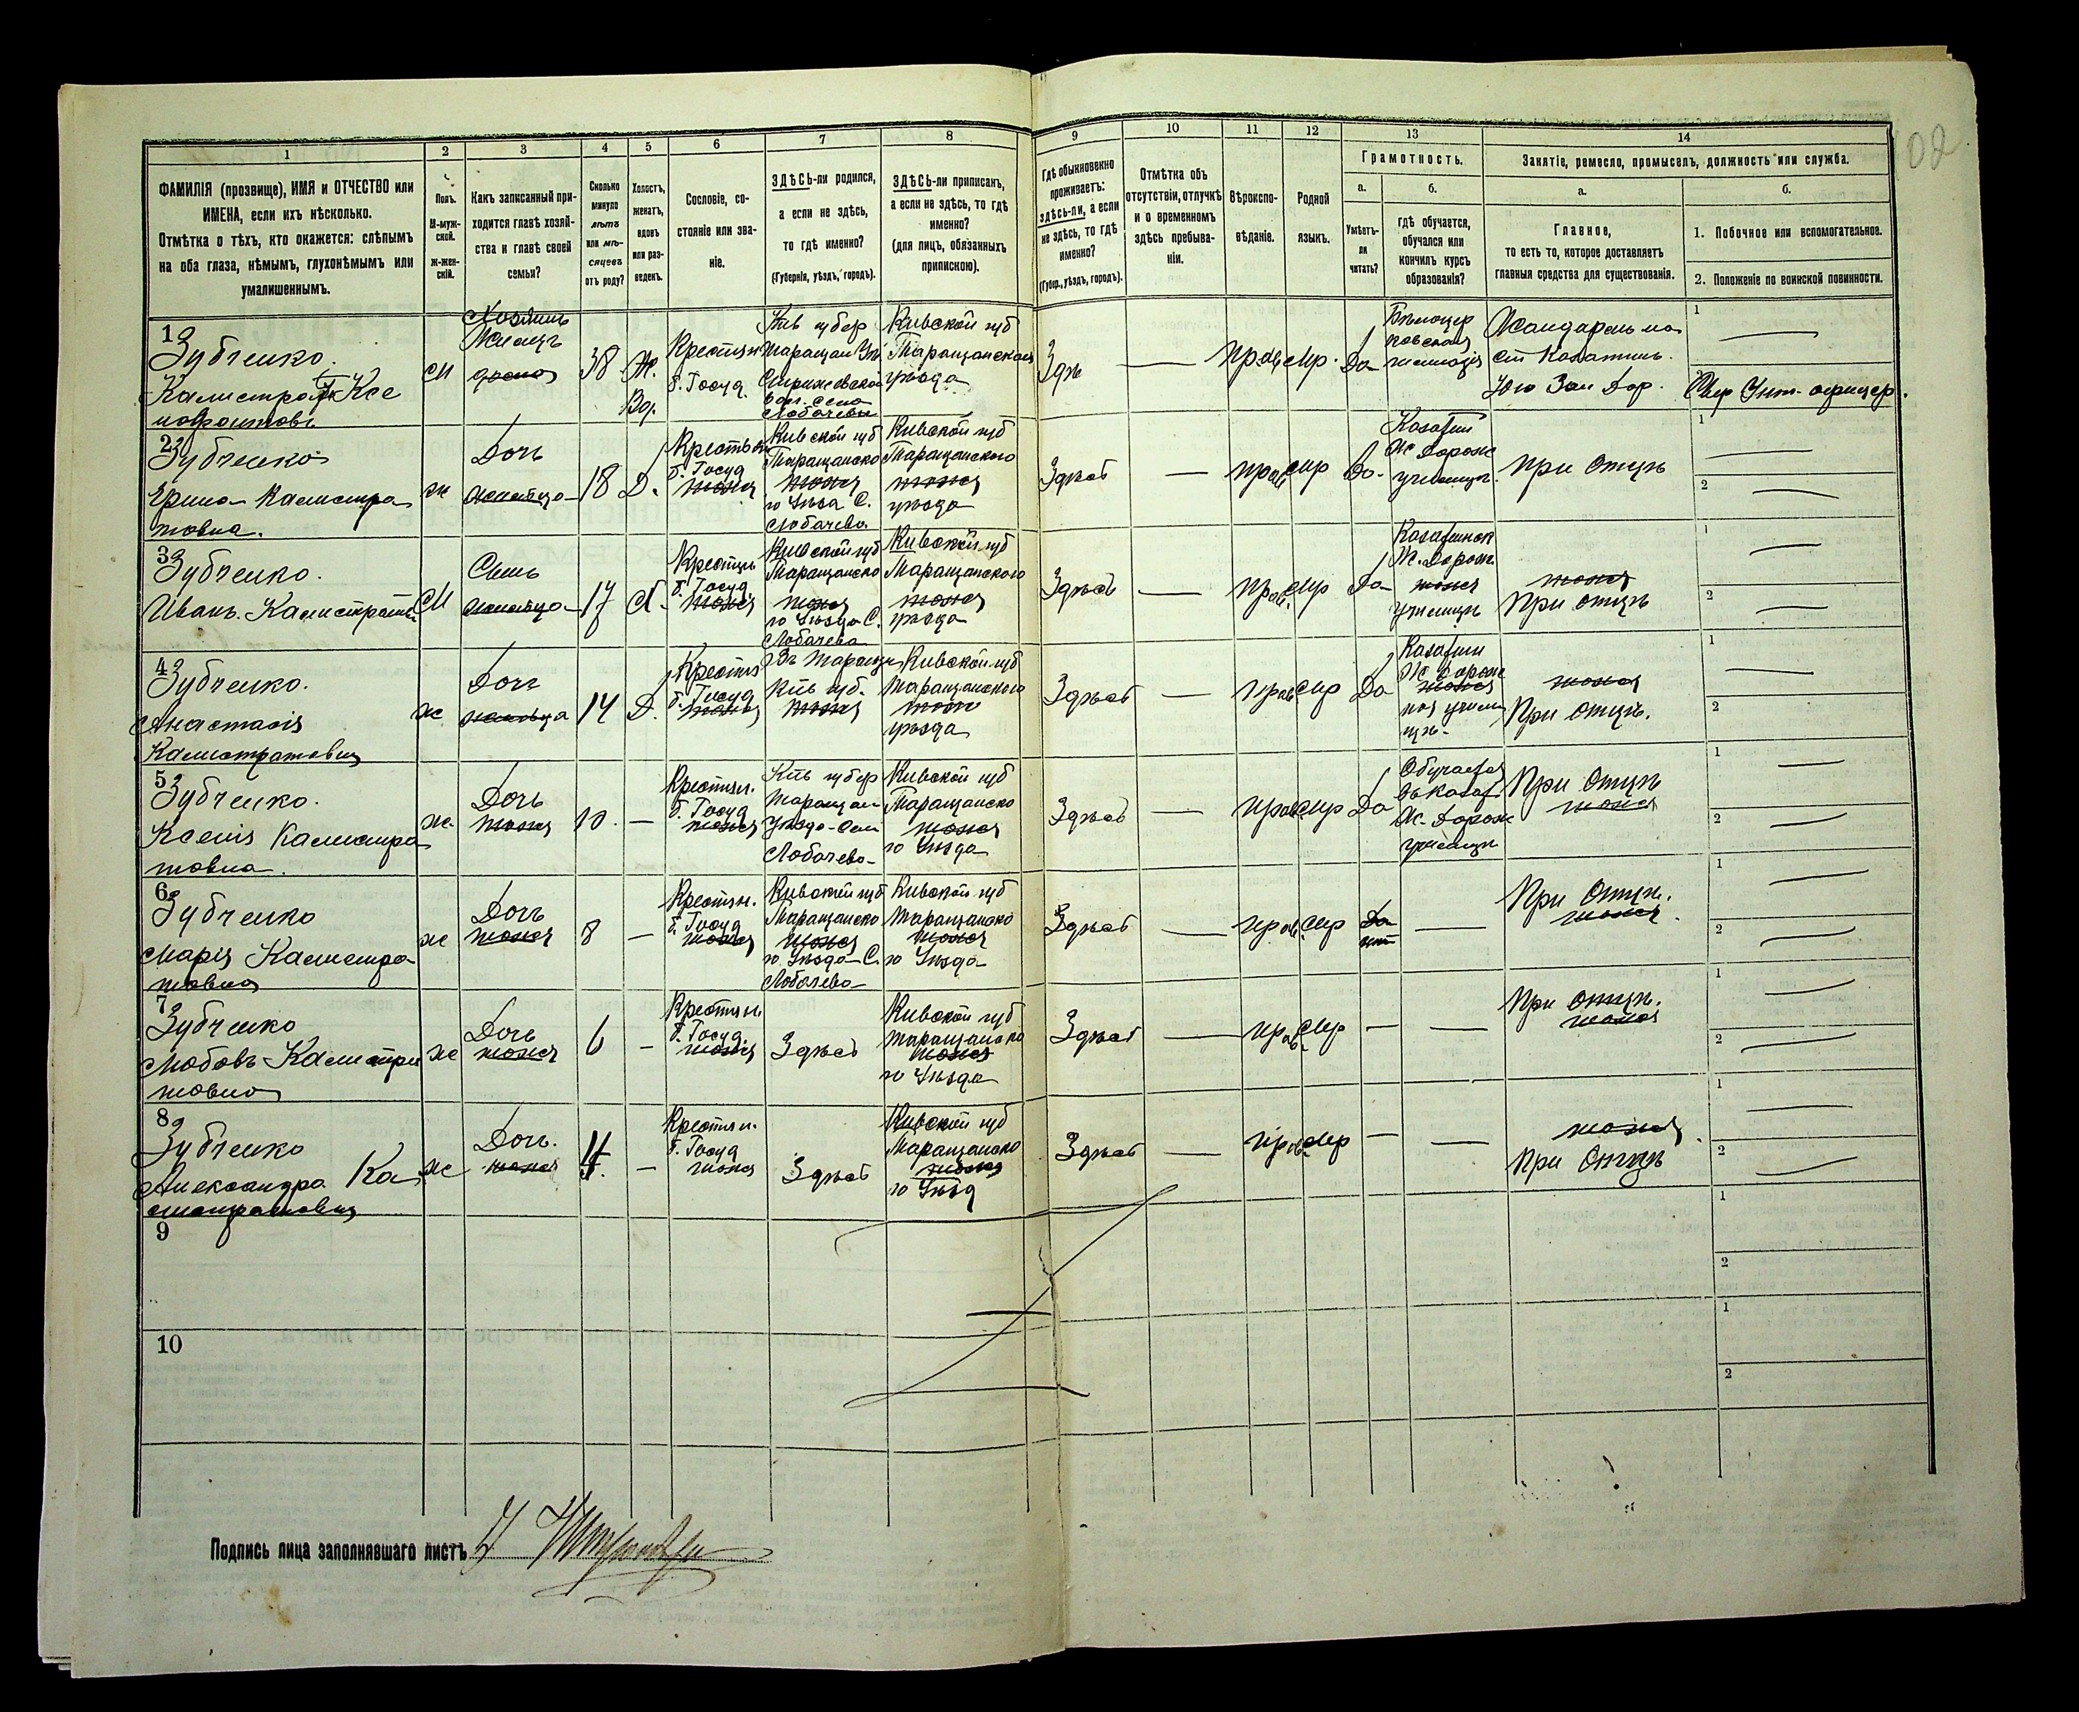 02
1
2
3
4
5
6
7
8
9
10
11
12
13
14
ФАМИЛІЯ (прозвище), ИМЯ и ОТЧЕСТВО или
ИМЕНА, если ихъ нѣсколько.
Отмѣтка о тѣхъ, кто окажется: слѣпымъ
на оба глаза, нѣмымъ, глухонѣмымъ или
умалишеннымъ.
Полъ.
М-муж-
ской.
ж-жен-
скій.
Какъ записанный при-
ходится главѣ хозяй-
ства и главѣ своей
семьи?
Сколько
минуло
лѣтъ
или мѣ-
сяцевъ
отъ роду?
Холостъ,
женатъ,
вдовъ
или раз-
веденъ.
Сословіе, со-
стояніе или зва-
ніе.
ЗДѢСЬ-ли родился,
а если не здѣсь,
то гдѣ именно?
(Губернія, уѣздъ, городъ).
ЗДѢСЬ-ли приписанъ,
а если не здѣсь, то гдѣ
именно?
(для лицъ, обязанныхъ
припискою).
Гдѣ обыкновенно
проживаетъ:
здѣсь-ли, а если
не здѣсь, то гдѣ
именно?
(Губер., уѣздъ, городъ).
Отмѣтка объ
отсутствіи, отлучкѣ
и о временномъ
здѣсь пребыва-
ніи.
Вѣроиспо-
вѣданіе.
Родной
языкъ.
Грамотность.
а.
б.
Умѣетъ-
ли
читать?
гдѣ обучается,
обучался или
кончилъ курсъ
образованія?
Занятіе, ремесло, промыселъ, должность или служба.
а.
б.
Главное,
то есть то, которое доставляетъ
главныя средства для существованія.
1. Побочное или вспомогательное.
2. Положеніе по воинской повинности.
1
Зубченко.
Калистратъ Ксе
нофонтовъ
М
Хозяинъ
38
Ж.
Вд.
Б. Госуд.
Кив губер
Таращан
Лобачевы
Кивской губ
Таращанскаго
уѣзда
Здѣ
—
Прав
Мр.
Да
гимназія
Жандармъ на
ст Казатинъ.
Юго Зап Дор.
1
Унт-офицер.
2
Зубченко
Ерина Калистра
товна.
ж
Дочь
18
Д.
Б. Госуд
тоже
Кивской губ
Таращанско
тоже
го Уѣзда С.
Лобачева
Кивской губ
Таращанского
тоже
уѣзда
Здѣсь
—
прав
Мр
Да
Казатин
Ж Дорож
училищ.
При Отцѣ
1
2
3
Зубченко.
Иванъ. Калистратов
М
Сынъ
17
Х.
Б. Госуд.
тоже
Кивской губ
Таращанско
тоже
го Уѣзда С.
Лобачева
Кивской губ
Таращанского
тоже
уѣзда
Здѣсь
—
прав.
Мр
Да
Казатинск
Ж. Дорож
тоже
училищ
тоже
При отцѣ
1
2
4
Зубченко.
Анастасія
Калистратовна
ж
Дочь
14
Д.
Б. Госуд
тоже
Въ Таращ
Кив губ.
тоже
Кивской губ
Таращанского
тоже
уѣзда
Здѣсь
—
прав
Мр
Да
Казатин
Ж Дорож
тоже
ная учили
щѣ
тоже
При отцѣ.
1
2
5
Зубченко.
Ксенія Калистра
товна.
ж
Дочь
тоже
10
—
Крестьян.
Б. Госуд
тоже
Кив губер
Таращан
Уѣзда Села
Лобачева
Кивской губ
Таращанско
тоже
го Уѣзда
Здѣсь
—
прав
Мр
Да
Обучается
въ Казат
Ж. Дорож
училищ
При Отцѣ
тоже
1
2
6
Зубченко
Марія Калистра
товна
ж
Дочь
тоже
8
—
Крестьян.
Б. Госуд
тоже
Кивской губ
Таращанско
тоже
го Уѣзда С.
Лобачева
Кивской губ
Таращанско
тоже
го Уѣзда
Здѣсь
—
прав.
Мр
Да
нѣт
—
При Отцѣ.
тоже
1
2
7
Зубченко
Любовь Калистра
товна
ж
Дочь
тоже
6
—
Крестьян.
Б. Госуд.
тоже
Здѣсь
Кивской губ
Таращанско
тоже
го Уѣзда
Здѣсь
—
прав.
Мр
—
—
При Отцѣ.
тоже
1
2
8
Зубченко
Александра Ка
листратовна
ж
Дочь.
тоже
4
—
Крестьян.
Б. Госуд
тоже
Здѣсь
Кивской губ
Таращанско
тоже
го Уѣзд
Здѣсь
—
прав.
Мр
—
—
тоже.
При Отцѣ
1
2
9
1
2
10
1
2
Подпись лица заполнявшаго листъ